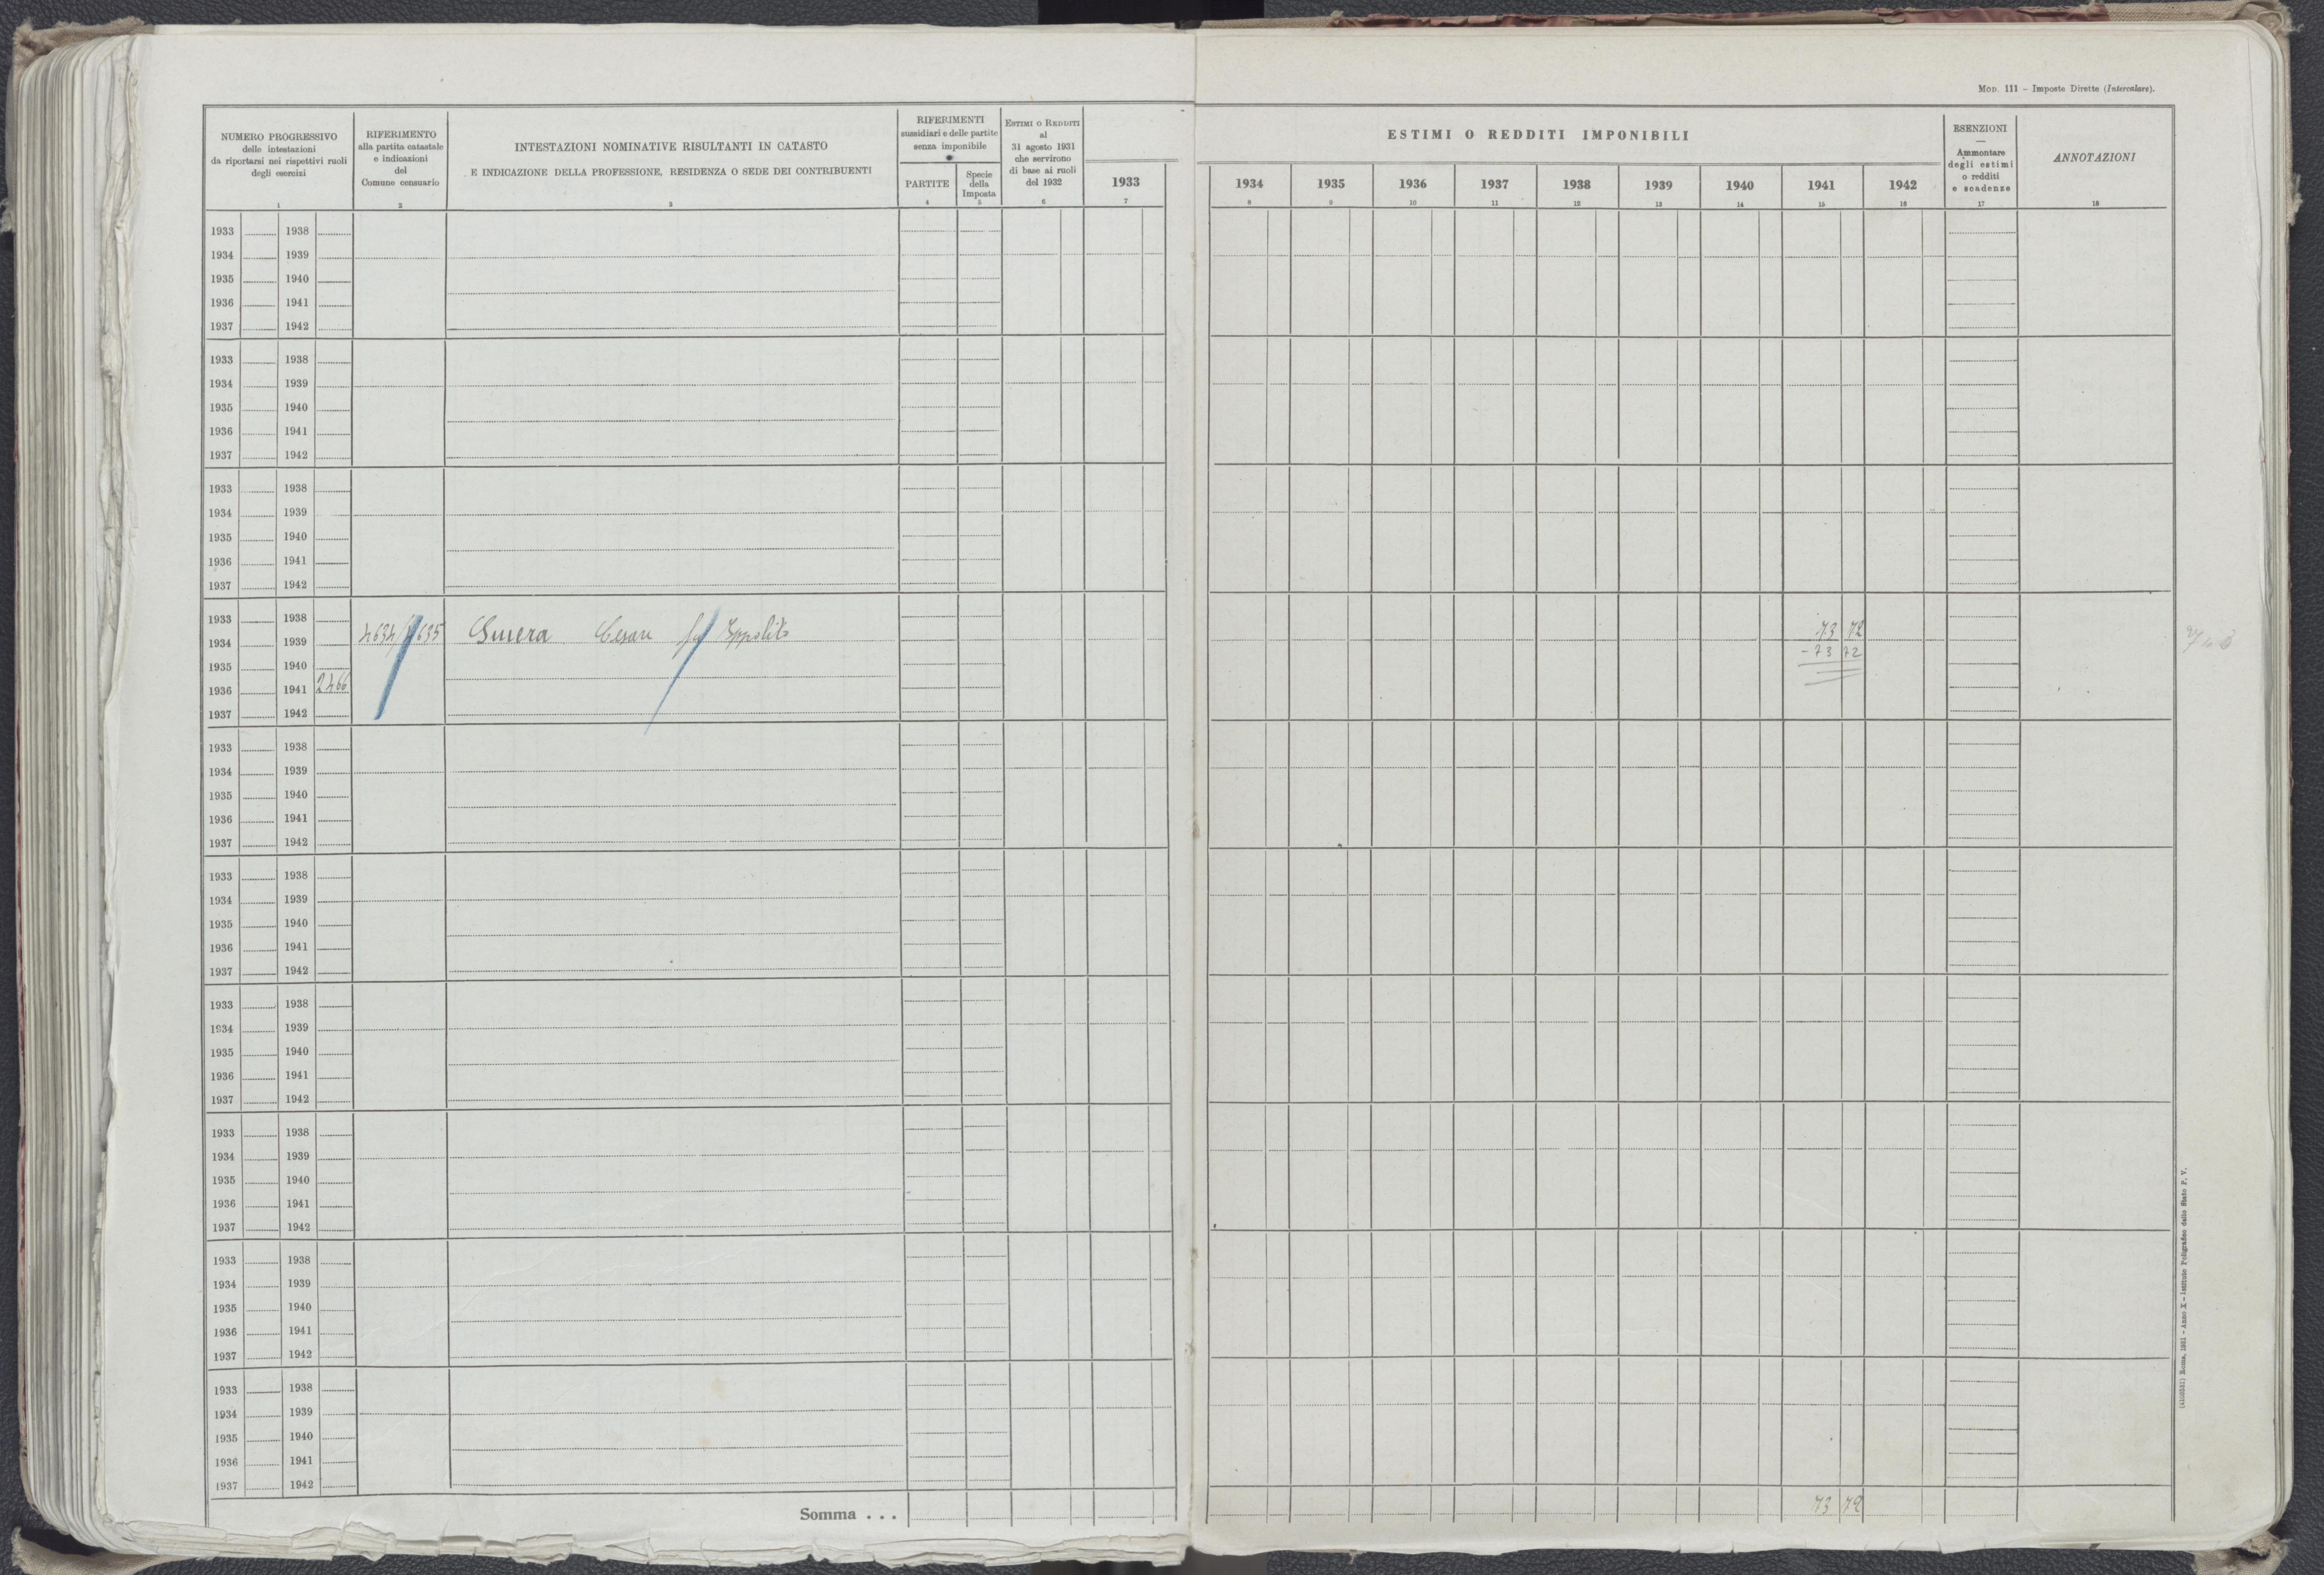 Mod. 111 – Imposte Dirette (Intercalare).
NUMERO PROGRESSIVO
delle intestazioni
da riportarsi nei rispettivi ruoli
degli esercizi
1
RIFERIMENTO
alla partita catastale
e indicazioni
del
Comune censuario
2
INTESTAZIONI NOMINATIVE RISULTANTI IN CATASTO
E INDICAZIONE DELLA PROFESSIONE, RESIDENZA O SEDE DEI CONTRIBUENTI
3
RIFERIMENTI
sussidiari e delle partite
senza imponibile
PARTITE
4
Specie
della
Imposta
5
ESTIMI O REDDITI
al
31 agosto 1931
che servirono
di base ai ruoli
del 1932
6
1933
7
ESTIMI O REDDITI IMPONIBILI
1934 1935 1936 1937 1938 1939 1940 1941 1942
8 9 10 11 12 13 14 15 16
ESENZIONI
Ammontare
degli estimi
o redditi
e scadenze
17
ANNOTAZIONI
18
1933 1938
1934 1939
1935 1940
1936 1941
1937 1942
1933 1938
1934 1939
1935 1940
1936 1941
1937 1942
1933 1938
1934 1939
1935 1940
1936 1941
1937 1942
1933 1938
1934 1939 4634/4635 Cesare fu Ippolito 73 72
1935 1940 - 73 72
1936 1941 2466
1937 1942
1933 1938
1934 1939
1935 1940
1936 1941
1937 1942
1933 1938
1934 1939
1935 1940
1936 1941
1937 1942
1933 1938
1934 1939
1935 1940
1936 1941
1937 1942
1933 1938
1934 1939
1935 1940
1936 1941
1937 1942
1933 1938
1934 1939
1935 1940
1936 1941
1937 1942
1933 1938
1934 1939
1935 1940
1936 1941
1937 1942
Somma . . . 73 72
Roma, 1931 – Anno X – Istituto Poligrafico dello Stato P. V.